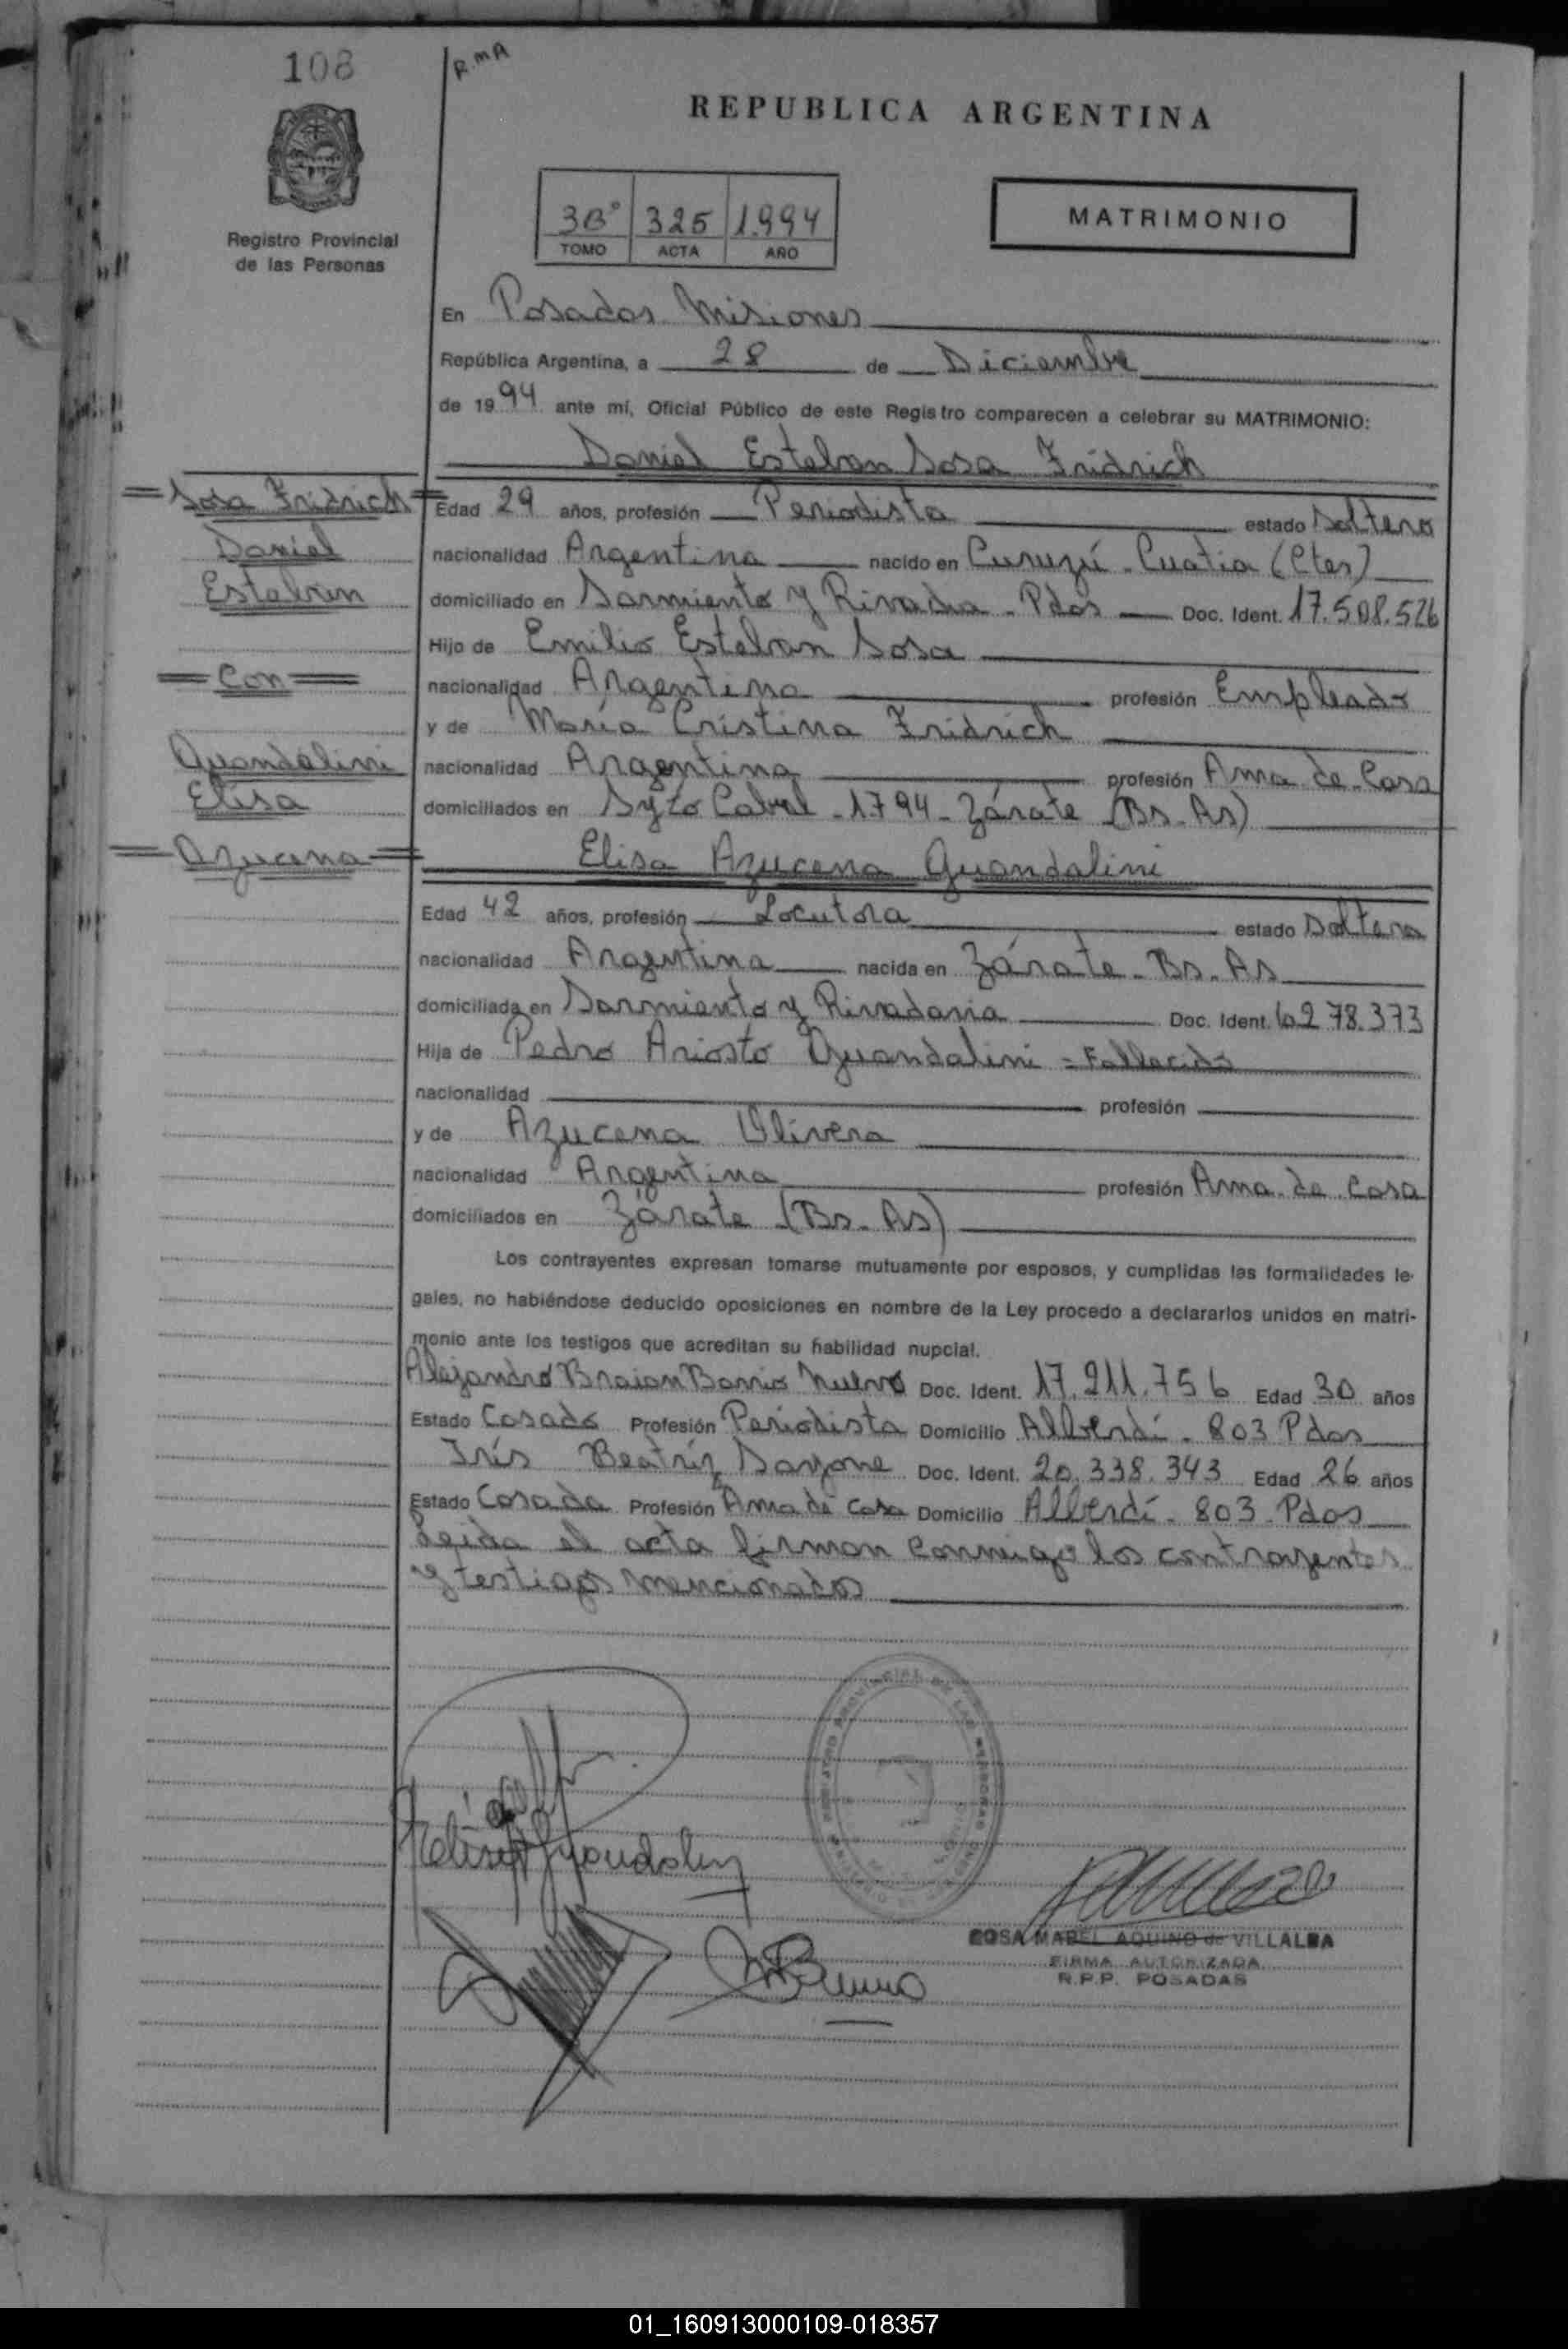 108
R.MA
REPUBLICA ARGENTINA
3B° 325 1.994
TOMO ACTA AÑO
MATRIMONIO
Registro Provincial
de las Personas
En Posadas Misiones
República Argentina, a 28 de Diciembre
de 1994 ante mí, Oficial Público de este Registro comparecen a celebrar su MATRIMONIO:
Daniel Esteban Sosa Fridrich
Sosa Fridrich
Daniel
Esteban
Con
Guandalini
Elisa
Azucena
Edad 29 años, profesión Periodista estado Soltero
nacionalidad Argentina nacido en Curuzú-Cuatia (Ctes)
domiciliado en Sarmiento y Rivadia - Pdas Doc. Ident. 17.508.526
Hijo de Emilio Esteban Sosa
nacionalidad Argentina profesión Empleado
y de María Cristina Fridrich
nacionalidad Argentina profesión Ama de Casa
domiciliados en Sgto Cabral - 1.794 - Zárate (Bs-As)
Elisa Azucena Guandalini
Edad 42 años, profesión Locutora estado Soltera
nacionalidad Argentina nacida en Zárate - Bs. As
domiciliada en Sarmiento y Rivadavia Doc. Ident. 10.278.373
Hija de Pedro Ariosto Guandalini = Fallecido
nacionalidad profesión
y de Azucena Olivera
nacionalidad Argentina profesión Ama de Casa
domiciliados en Zárate (Bs-As)
Los contrayentes expresan tomarse mutuamente por esposos, y cumplidas las formalidades le-
gales, no habiéndose deducido oposiciones en nombre de la Ley procedo a declararlos unidos en matri-
monio ante los testigos que acreditan su habilidad nupcial.
Alejandro Braian Barrio Nuevo Doc. Ident. 17.211.756 Edad 30 años
Estado Casado Profesión Periodista Domicilio Alberdi - 803 Pdas
Irís Beatríz Doc. Ident. 20.338.343 Edad 26 años
Estado Casada Profesión Ama de Casa Domicilio Alberdi - 803 - Pdas
Leida el acta firman conmigo los contrayentes
y testigos mencionados
ROSA MABEL AQUINO de VILLALBA
FIRMA AUTORIZADA
R.P.P. POSADAS
01_160913000109-018357